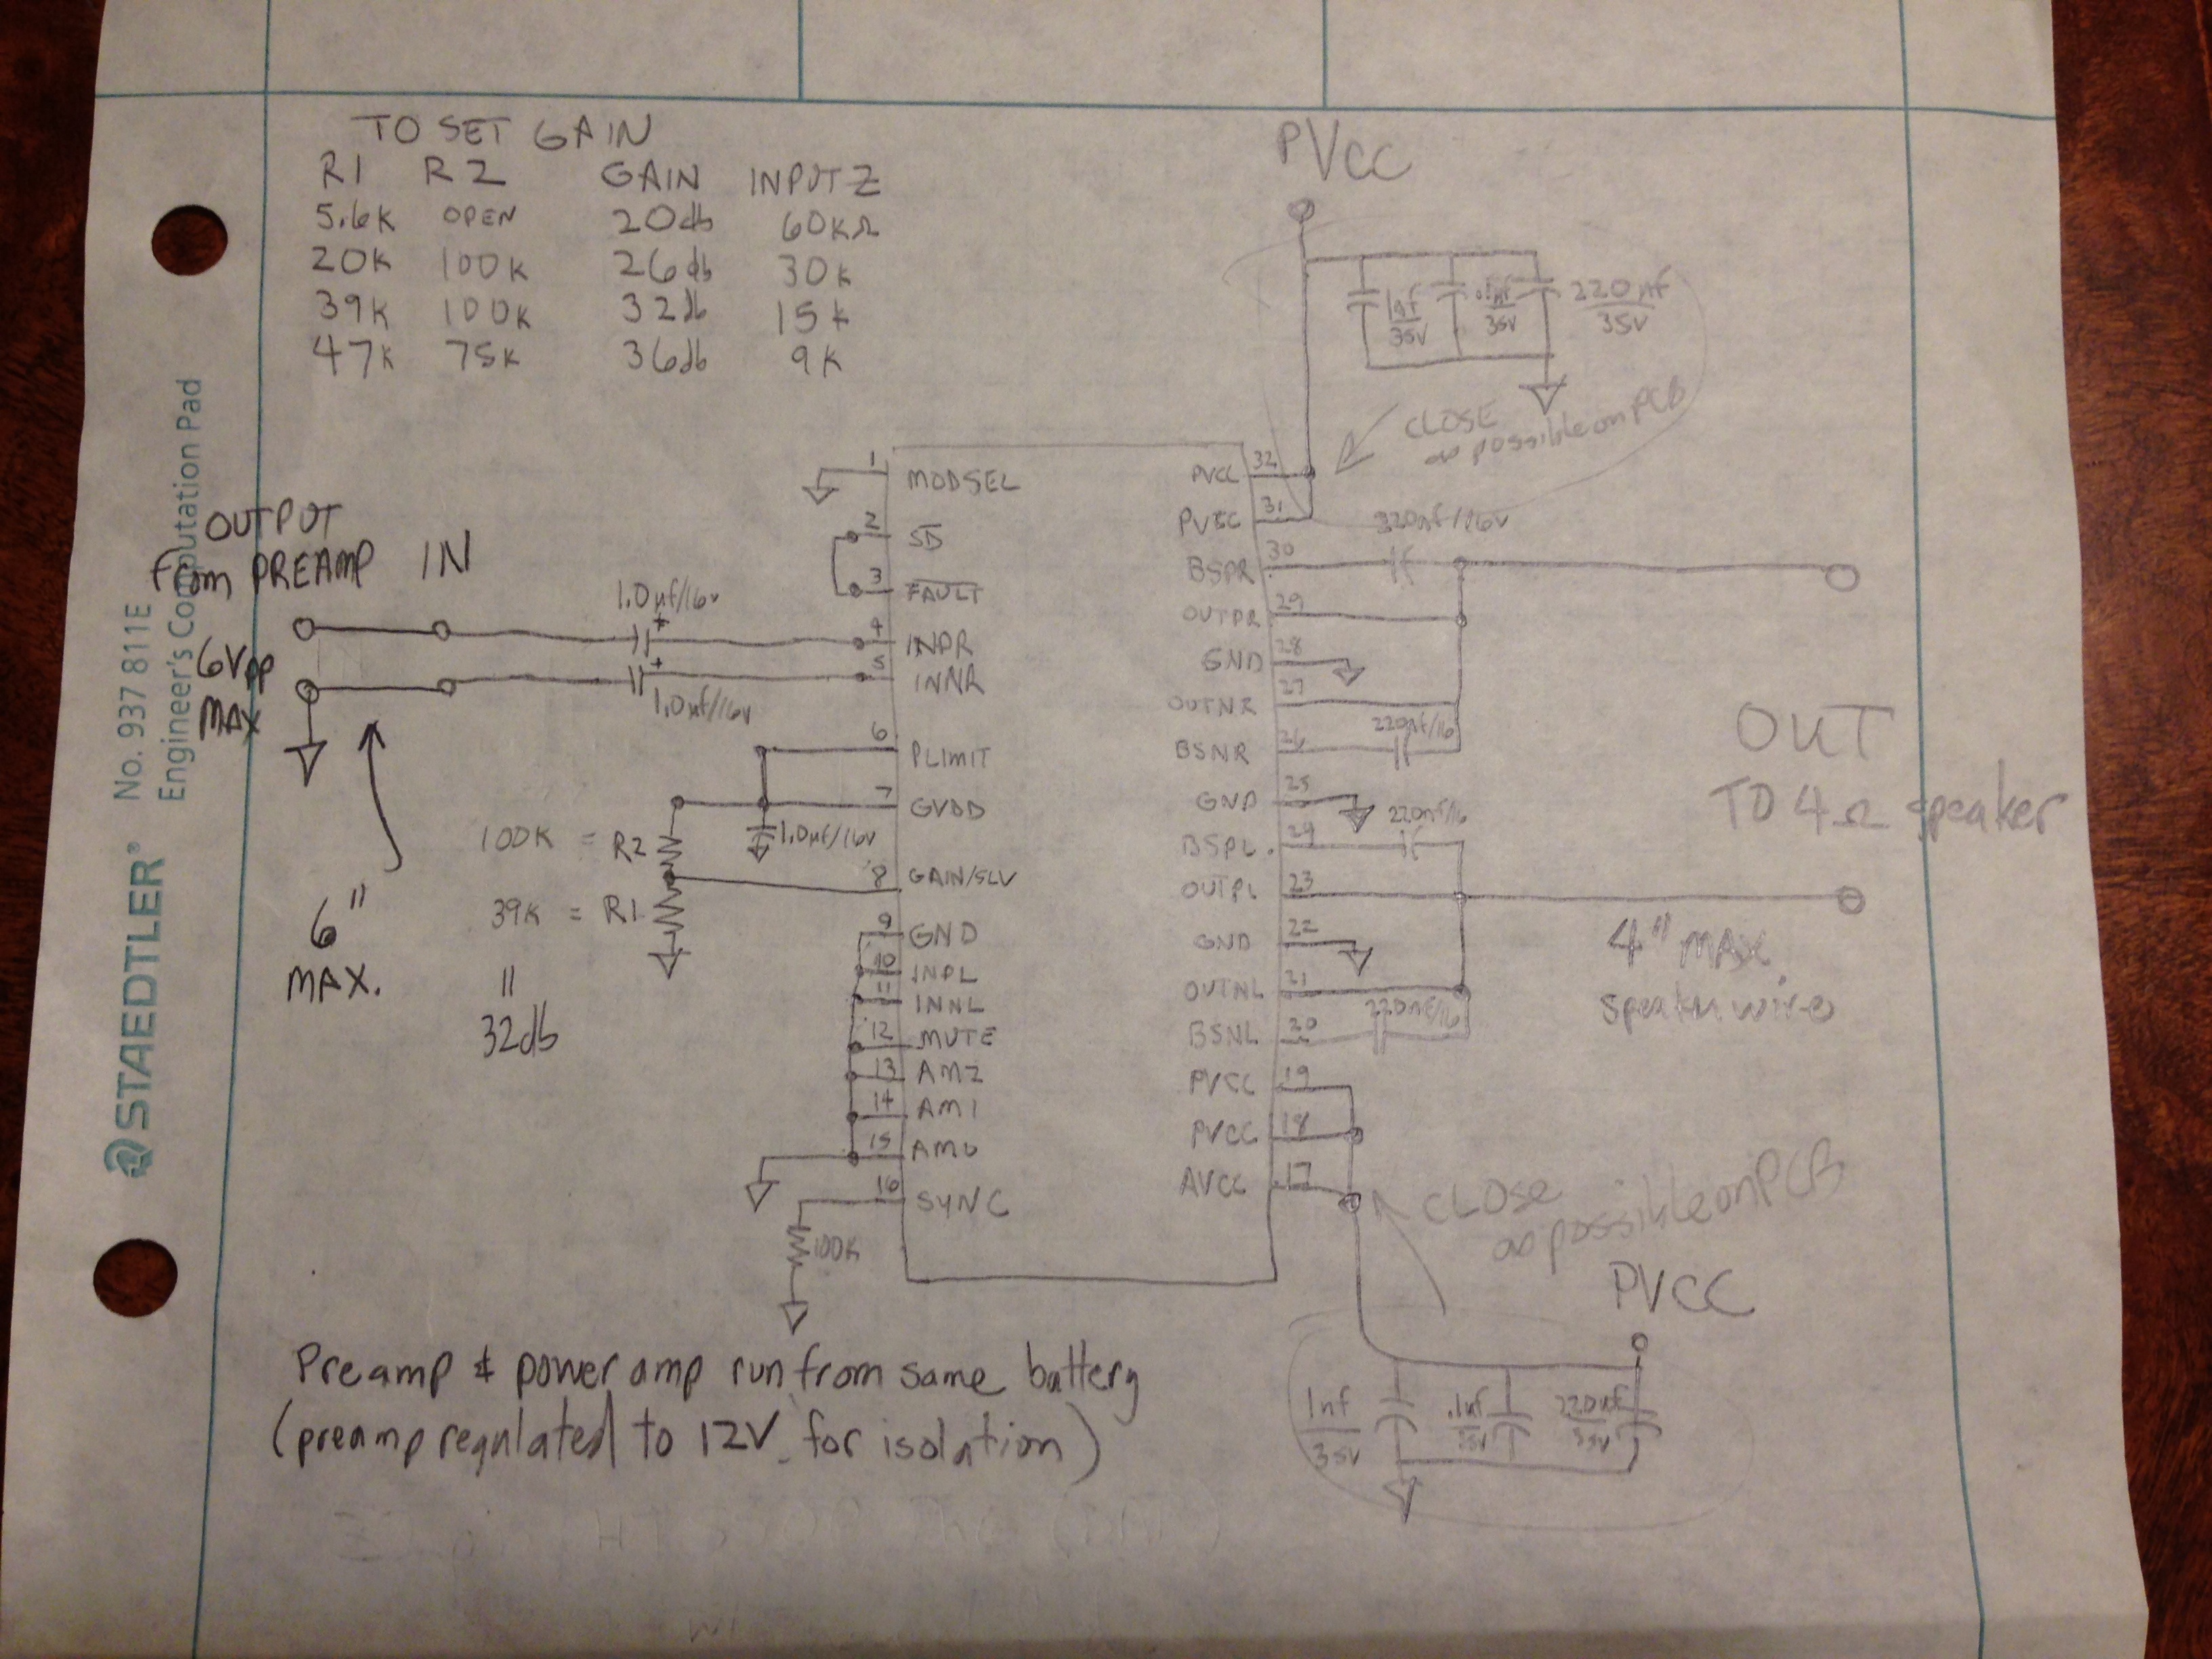 TO SET GAIN
R1 R2 GAIN INPUT Z
5.6K OPEN 20db 60KΩ
20K 100K 26db 30K
39K 100K 32db 15K
47K 75K 36db 9K
PVCC
1nf
35V
.1µf
35V
220µf
35V
CLOSE
as possible on PCB
No. 937 811E
Engineer's Computation Pad
STAEDTLER®
OUTPUT
from PREAMP IN
6Vpp
MAX
6"
MAX.
1.0µf/16v
+
+
1.0µf/16v
1 MODSEL
2 SD
3 FAULT
4 INPR
5 INNR
6 PLIMIT
7 GVDD
1.0µf/16v
100K = R2
8 GAIN/SLV
39K = R1
=
32db
9 GND
10 INPL
11 INNL
12 MUTE
13 AM2
14 AM1
15 AM0
16 SYNC
100K
PVCC 32
PVCC 31
220nf/16v
BSPR 30
OUTPR 29
GND 28
OUTNR 27
220nf/16
BSNR 26
GND 25
220nf/16
BSPL 24
OUTPL 23
GND 22
OUTNL 21
220nf/16
BSNL 20
PVCC 19
PVCC 18
AVCC 17
OUT
TO 4Ω speaker
4" MAX
speaker wire
CLOSE
as possible on PCB
PVCC
1nf
35V
.1uf
35V
220uf
35V
Preamp & power amp run from same battery
(preamp regulated to 12V for isolation)